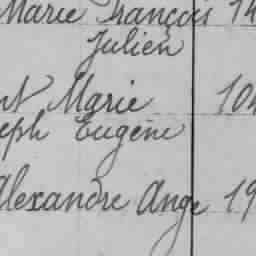 Marie François 14
Julien
nt Marie 104
eph Eugène
Alexandre Ange 19